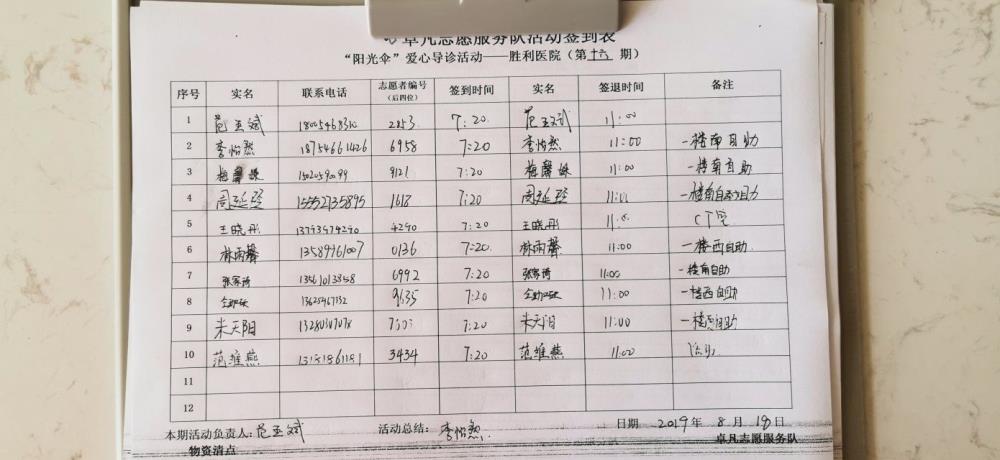 卓凡志愿服务队活动签到表
“阳光伞”爱心导诊活动——胜利医院（第十六期）
序号 实名 联系电话 志愿者编号（后四位） 签到时间 实名 签退时间 备注
1 范玉斌 2853 7:20 范玉斌 11:00
2 李怡然 18754661426 6958 7:20 李怡然 11:00 一楼南自助
3 梅馨 9121 7:20 梅馨 11:00 一楼南自助
4 周延 15552135895 1618 7:20 周延 11:00 一楼南自助
5 王晓彤 13793974290 4290 7:20 王晓彤 11:00 CT室
6 林雨馨 13589961007 0136 7:20 林雨馨 11:00 一楼西自助
7 张家 13561013858 6992 7:20 张家 11:00 一楼南自助
8 9635 7:20 11:00 一楼西自助
9 朱天阳 7:20 朱天阳 11:00 一楼西自助
10 范维燕 3434 7:20 范维燕 11:00
11
12
本期活动负责人：范玉斌 活动总结：李怡然 日期 2019年8月18日
物资清点 卓凡志愿服务队